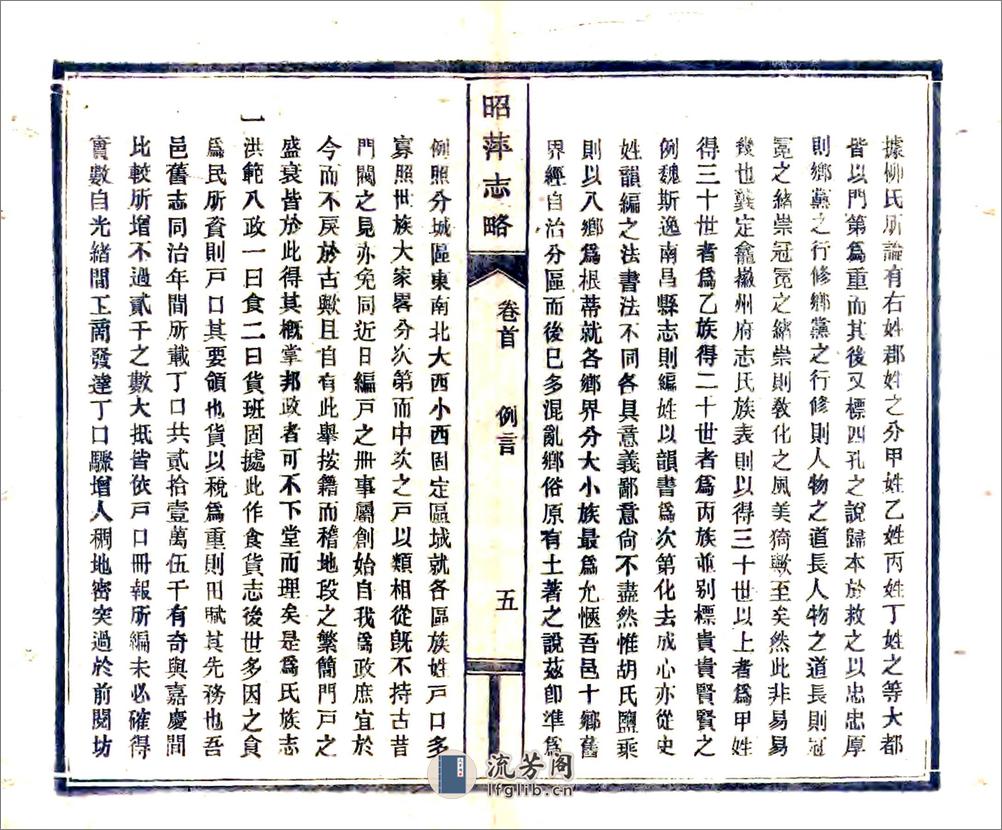 據柳氏所論有右姓郡姓之分甲姓乙姓丙姓丁姓之等大都
皆以門第為重而其後又標四孔之說歸本於救之以忠忠厚
則鄉黨之行修鄉黨之行修則人物之道長人物之道長則冠
冕之緒崇冠冕之緒崇則敎化之風美猗歟至矣然此非易易
幾也龔定龕徽州府志氏族表則以得三十世以上者爲甲姓
得三十世者爲乙族得二十世者爲丙族並别標貴貴賢賢之
例魏斯逸南昌縣志則編姓以韻書爲次第化去成心亦從史
姓韻編之法書法不同各具意義鄙意尙不盡然惟胡氏鹽乘
則以八鄉爲根蒂就各鄉界分大小族最爲允愜吾邑十鄉舊
界經自治分區而後已多混亂鄉俗原有土著之說茲卽準爲
昭萍志略
卷首
例言
五
例照分城區東南北大西小西固定區城就各區族姓戸口多
寡照世族大家畧分次第而中次之戸以類相從旣不持古昔
門閥之見亦免同近日編戸之冊事屬創始自我爲政庶宜於
今而不戾於古歟且自有此舉按籍而稽地段之繁簡門戸之
盛衰皆於此得其概掌邦政者可不下堂而理矣是爲氏族志
一洪範八政一曰食二曰貨班固據此作食貨志後世多因之食
爲民所資則戸口其要領也貨以稅爲重則田賦其先務也吾
邑舊志同治年間所載丁口共貳拾壹萬伍千有奇與嘉慶間
比較所增不過貳千之數大抵皆依戸口冊報所編未必確得
實數自光緒間工啇發達丁口驟增人稠地密突過於前閱坊
流芳阁
lfglib.cn